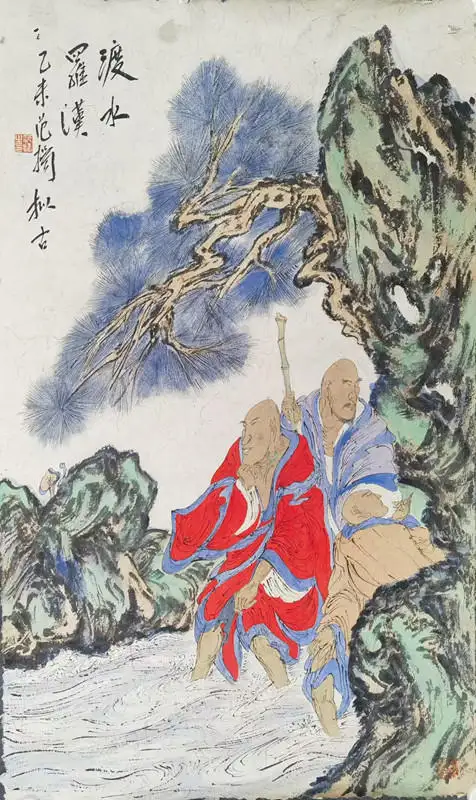 渡水
羅漢
乙未范揚拟古